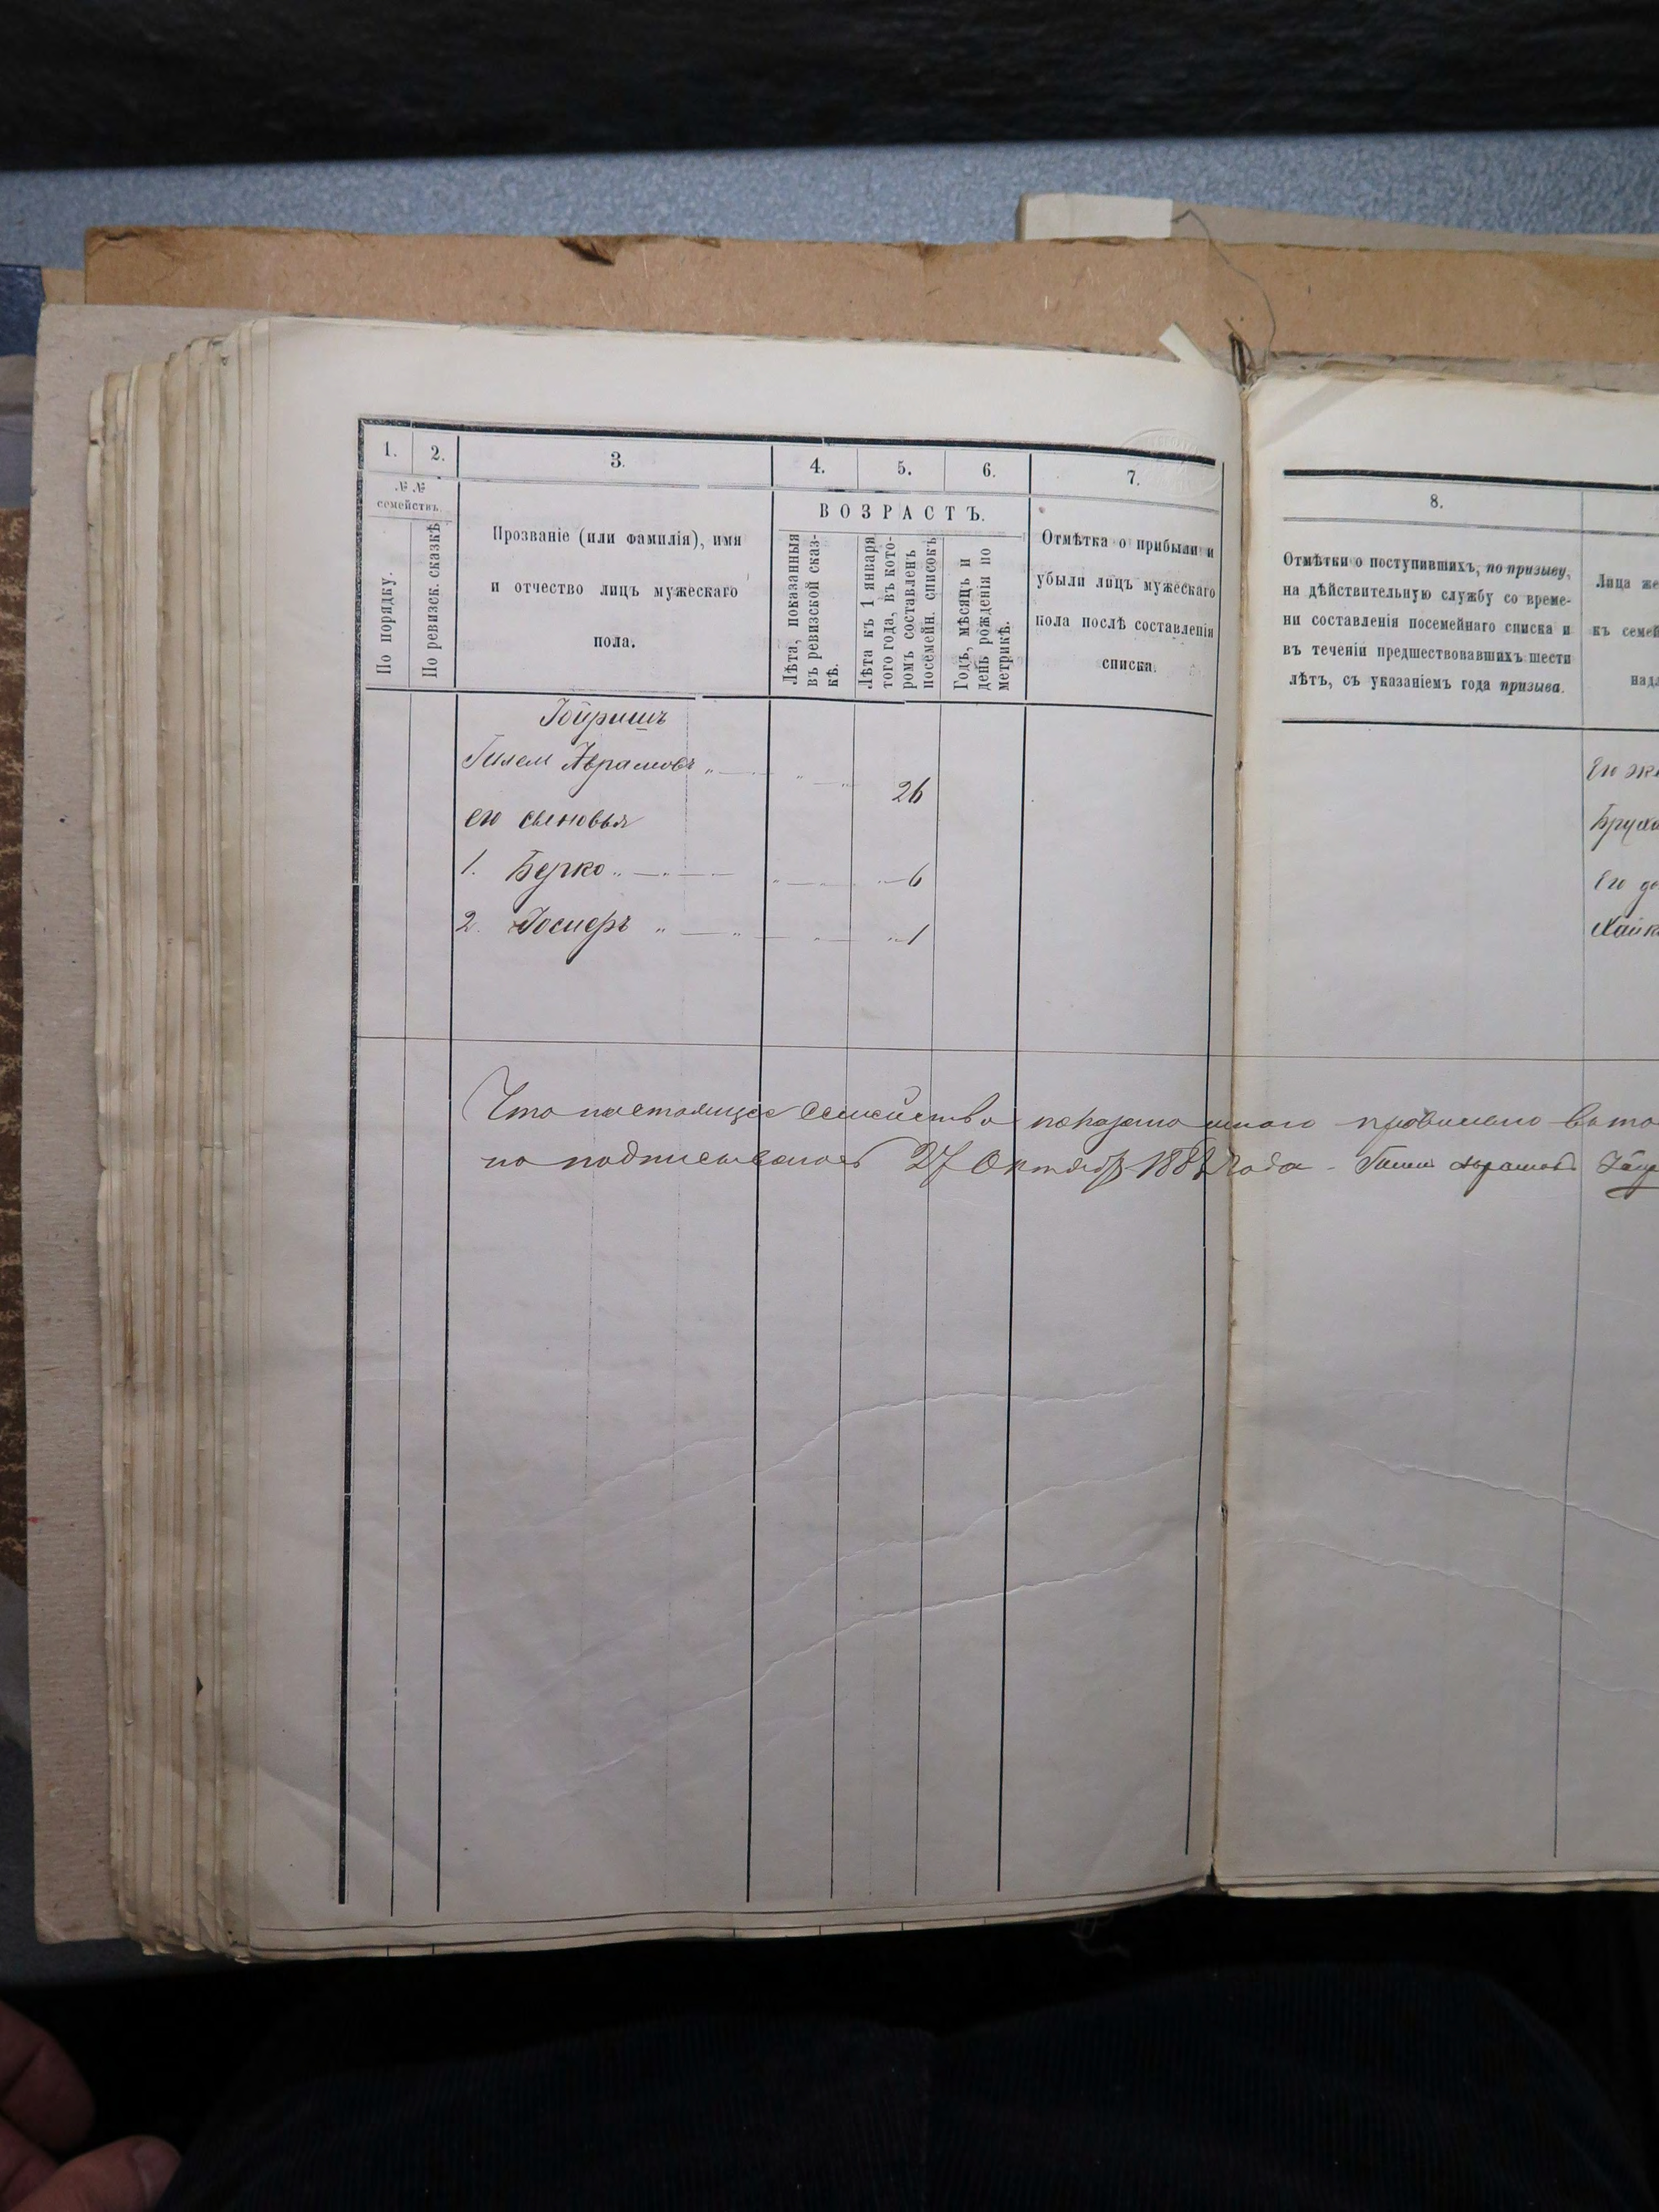 1. 2. 3. 4. 5. 6. 7.
№ №
семействъ.
По порядку.
По ревизск. сказкѣ
Прозваніе (или фамилія), имя
и отчество лицъ мужескаго
пола.
ВОЗРАСТЪ.
Лѣта, показанныя
въ ревизской сказ-
кѣ.
Лѣта къ 1 января
того года, въ кото-
ромъ составленъ
посемейн. списокъ
Годъ, мѣсяцъ и
день рожденія по
метрикѣ.
Отмѣтка о прибыли и
убыли лицъ мужескаго
пола послѣ составленія
списка.
Аврамовъ 26
его сыновья
1. Берко 6
2. 1
Что настоящее семейство показано мною правильно въ то
27 Октября 188 года
8.
Отмѣтки о поступившихъ, по призыву,
на дѣйствительную службу со време-
ни составленія посемейнаго списка и
въ теченіи предшествовавшихъ шести
лѣтъ, съ указаніемъ года призыва.
Лица же
къ семей
надл
Его же
Его до